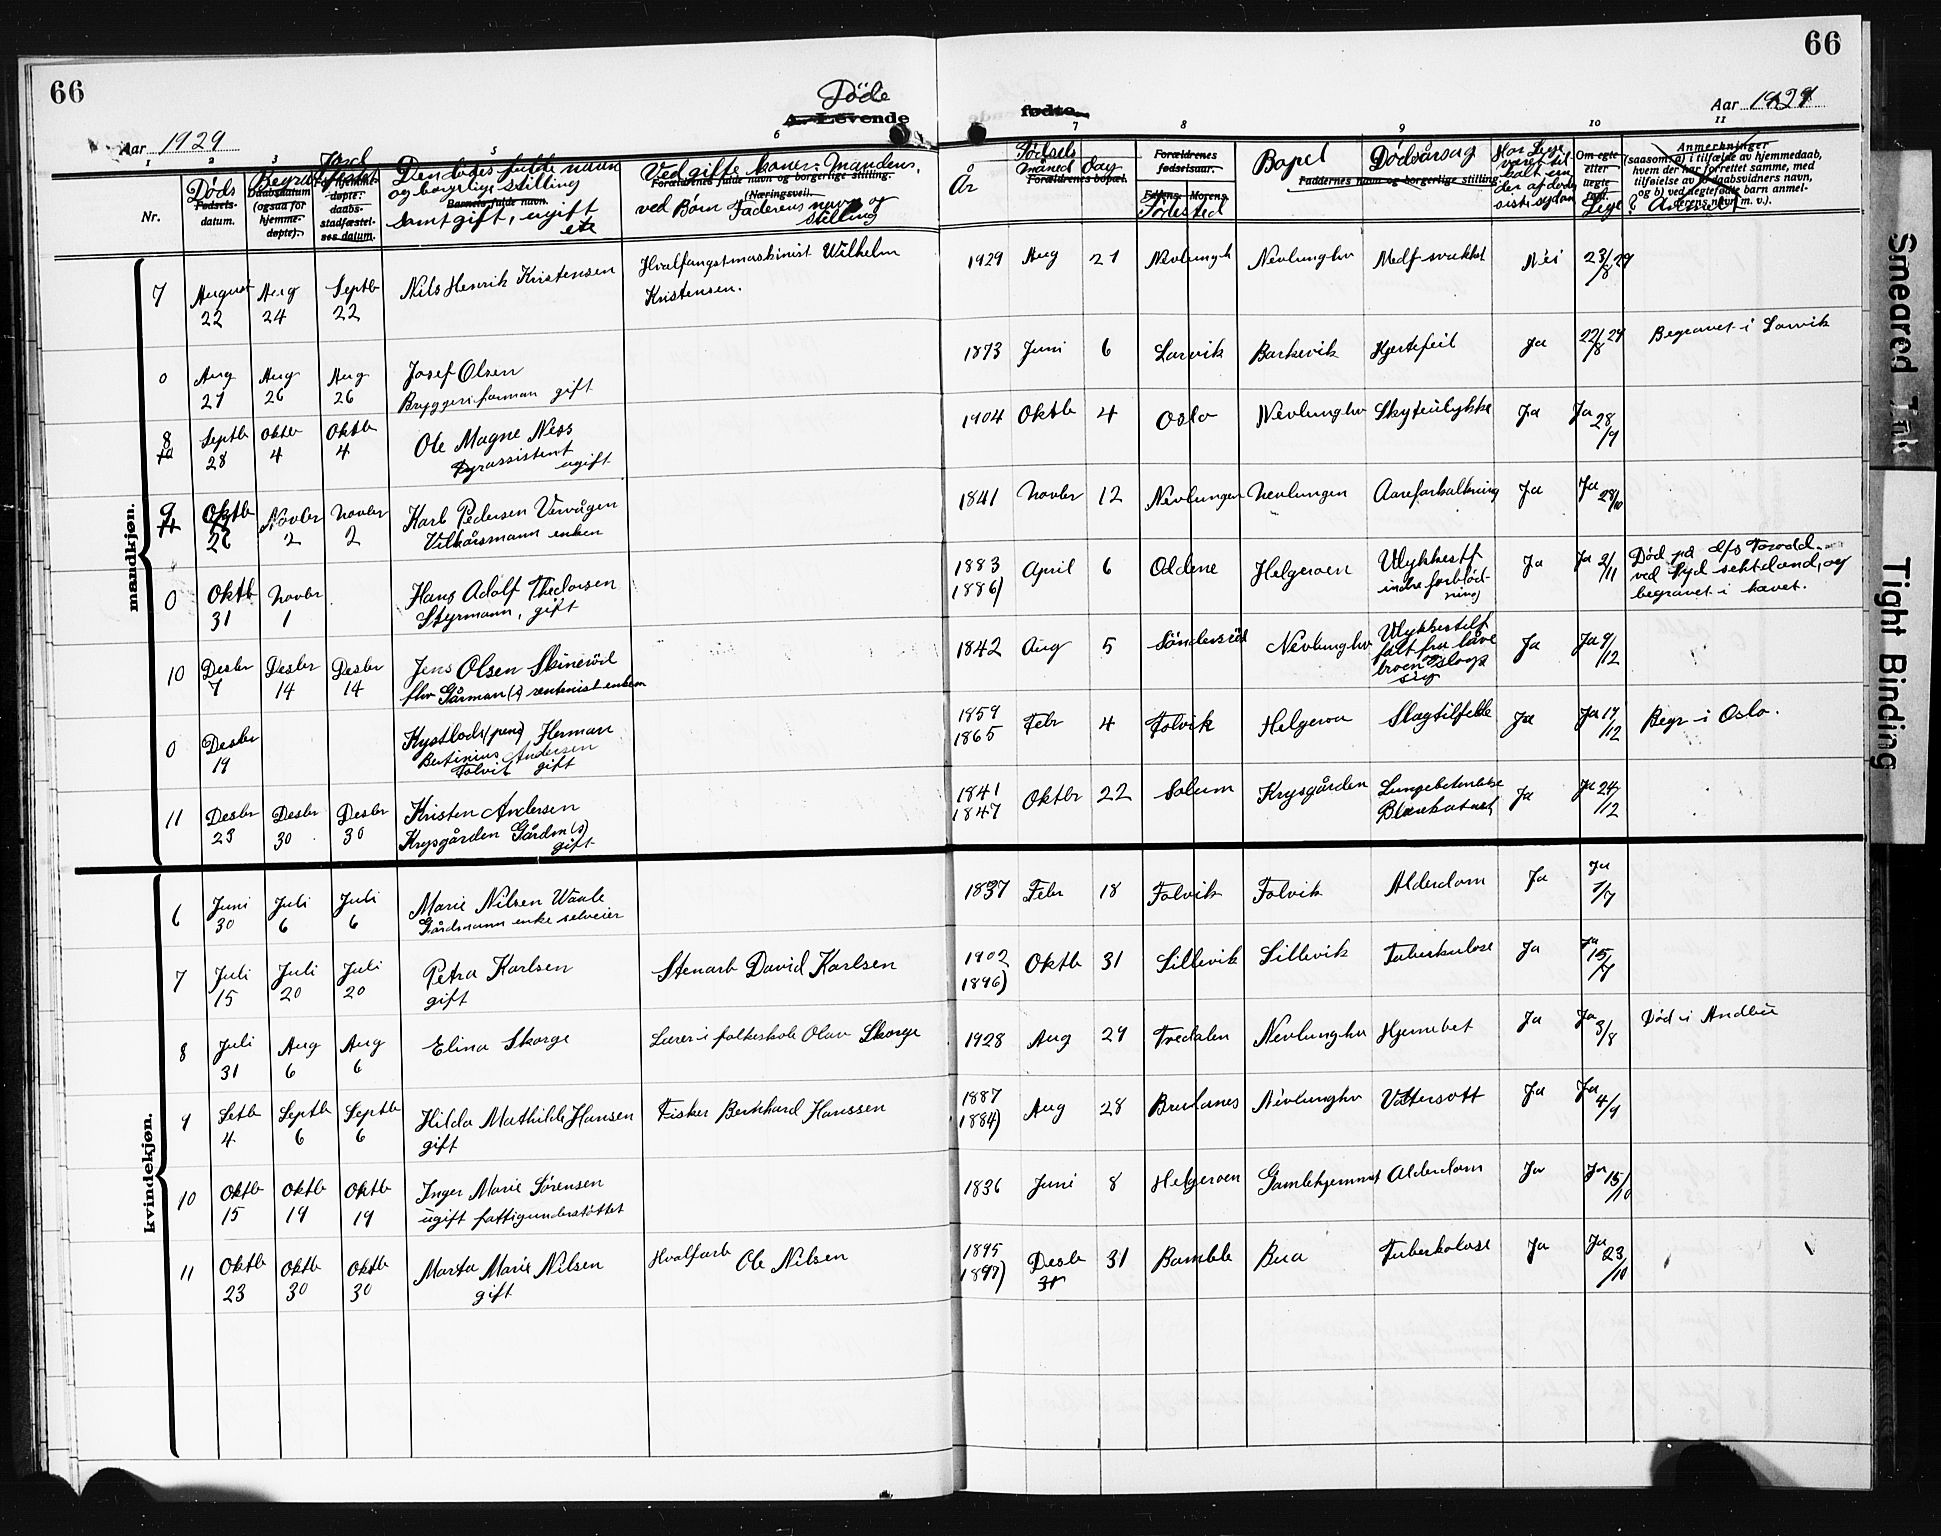 66
66
Døde
A. Levende
fødte.
Aar 1929
Aar 1929
1 2 3 5 6 7 8 9 10 11
Nr.
Døds
Fødsels-
datum.
Begrav
Daabsdatum
(ogsaa for
hjemme-
døpte).
Jord
festet
hjemme-
døpte:
daabs-
stadfæstel-
ses datum.
Den dødes fulde navn
og borgerlige stilling
Barnets fulde navn.
samt gift, ugift
etc
Ved gifte koner: Mandens,
Forældrenes fulde navn og borgerlige stilling.
(Næringsvei).
ved Børn Faderens navn og
stilling
År
Fødsels
måned Dag
Forældrenes bopæl.
Forældrenes
fødselsaar.
Faderens. Morens.
Fødested
Bopel
Dødsårsag
Faddernes navn og borgerlige stilling.
Har Lege
været til
kalt un
der afdødes
siste sygdom
Om egte
eller
uegte
født.
Lege
Anmerkninger
(saasom: a) i tilfælde av hjemmedaab,
hvem der har forrettet samme, med
tilføielse av to daabsvidners navn,
og b) ved uegtefødte barn anmel-
derens navn m. v.).
mandkjøn.
7 August 22 Aug 24 Septb 22 Nils Henrik Kristensen Hvalfangstmaskinist Wilhelm Kristensen. 1929 Aug 21 Nevlungh Nevlunghv Medf svakhet Nei 23/8 29
0 Aug 21 Aug 26 Aug 26 Josef Olsen Bryggeriforman gift 1873 Juni 6 Larvik Barkevik Hjertefeil Ja 22/8 29 Begravet i Larvik
8 Septb 28 Oktb 4 Oktb 4 Ole Magne Ness Fyrassistent ugift 1904 Oktb 4 Oslo Nevlunghv Skyteulykke Ja Ja 28/9
9 Oktb 26 Novbr 2 Novbr 2 Karl Pedersen Vervågen Vilkårsmann enkem 1841 Novbr 12 Nevlungen Nevlungen Aareforkalkning Ja Ja 28/10
0 Oktb 31 Novbr 1 Hans Adolf Thedorsen Styrmann, gift 1883 1886) April 6 Oddene Helgeroen Ulykkestf indre forblødning Ja Ja 2/11 Død på d/s Torodd ved Syd sehtland, og begravet i havet.
10 Desbr 7 Desbr 14 Desbr 14 Jens Olsen Skinerød fhv Gårman (s) rentenist enkem 1842 Aug 5 Søndersrød Nevlunghv Ulykkestilf falt fra låve broen og slog sig Ja Ja 9/12
0 Desbr 19 Kystlods (pens) Herman Bertinius Andersen Folvik gift 1859 1865 Febr 4 Folvik Helgeroa Slagtilfelde Ja Ja 19/12 Begr i Oslo.
11 Desbr 23 Desbr 30 Desbr 30 Kristen Andersen Krysgården Gårdm (s) gift 1841 1847 Oktbr 22 Solum Krysgården Lungebetendelse Blærekatarh Ja Ja 24/12
kvindekjøn.
6 Juni 30 Juli 6 Juli 6 Marie Nilsen Waale Gårdmann enke selveier 1837 Febr 18 Folvik Folvik Alderdom Ja Ja 1/7
7 Juli 15 Juli 20 Juli 20 Petra Karlsen gift Stenarb David Karlsen 1902 1896) Oktb 31 Sillevik Sillevik Tuberkulose Ja Ja 15/7
8 Juli 31 Aug 6 Aug 6 Elina Skorge Lærer i folkeskole Olav Skorge 1928 Aug 29 Fredalen Nevlunghv Hjernebet Ja Ja 3/8 Død i Andbu
9 Setb 4 Septb 6 Septb 6 Hilda Mathilde Hansen gift Fisker Bernhard Hanssen 1887 1884) Aug 28 Brulanes Nevlunghv Vattersott Ja Ja 4/9
10 Oktb 15 Oktb 19 Oktb 19 Inger Marie Sørensen ugift fattigunderstøttet 1836 Juni 8 Helgeroen Gamlehjemmet Alderdom Ja Ja 15/10
11 Oktb 23 Oktb 30 Oktb 30 Marta Marie Nilsen gift Hvalfarb Ole Nilsen 1895 1897) Desb 31 31 Bamble Bua Tuberkolose Ja Ja 23/10
Smeared Ink
Tight Binding